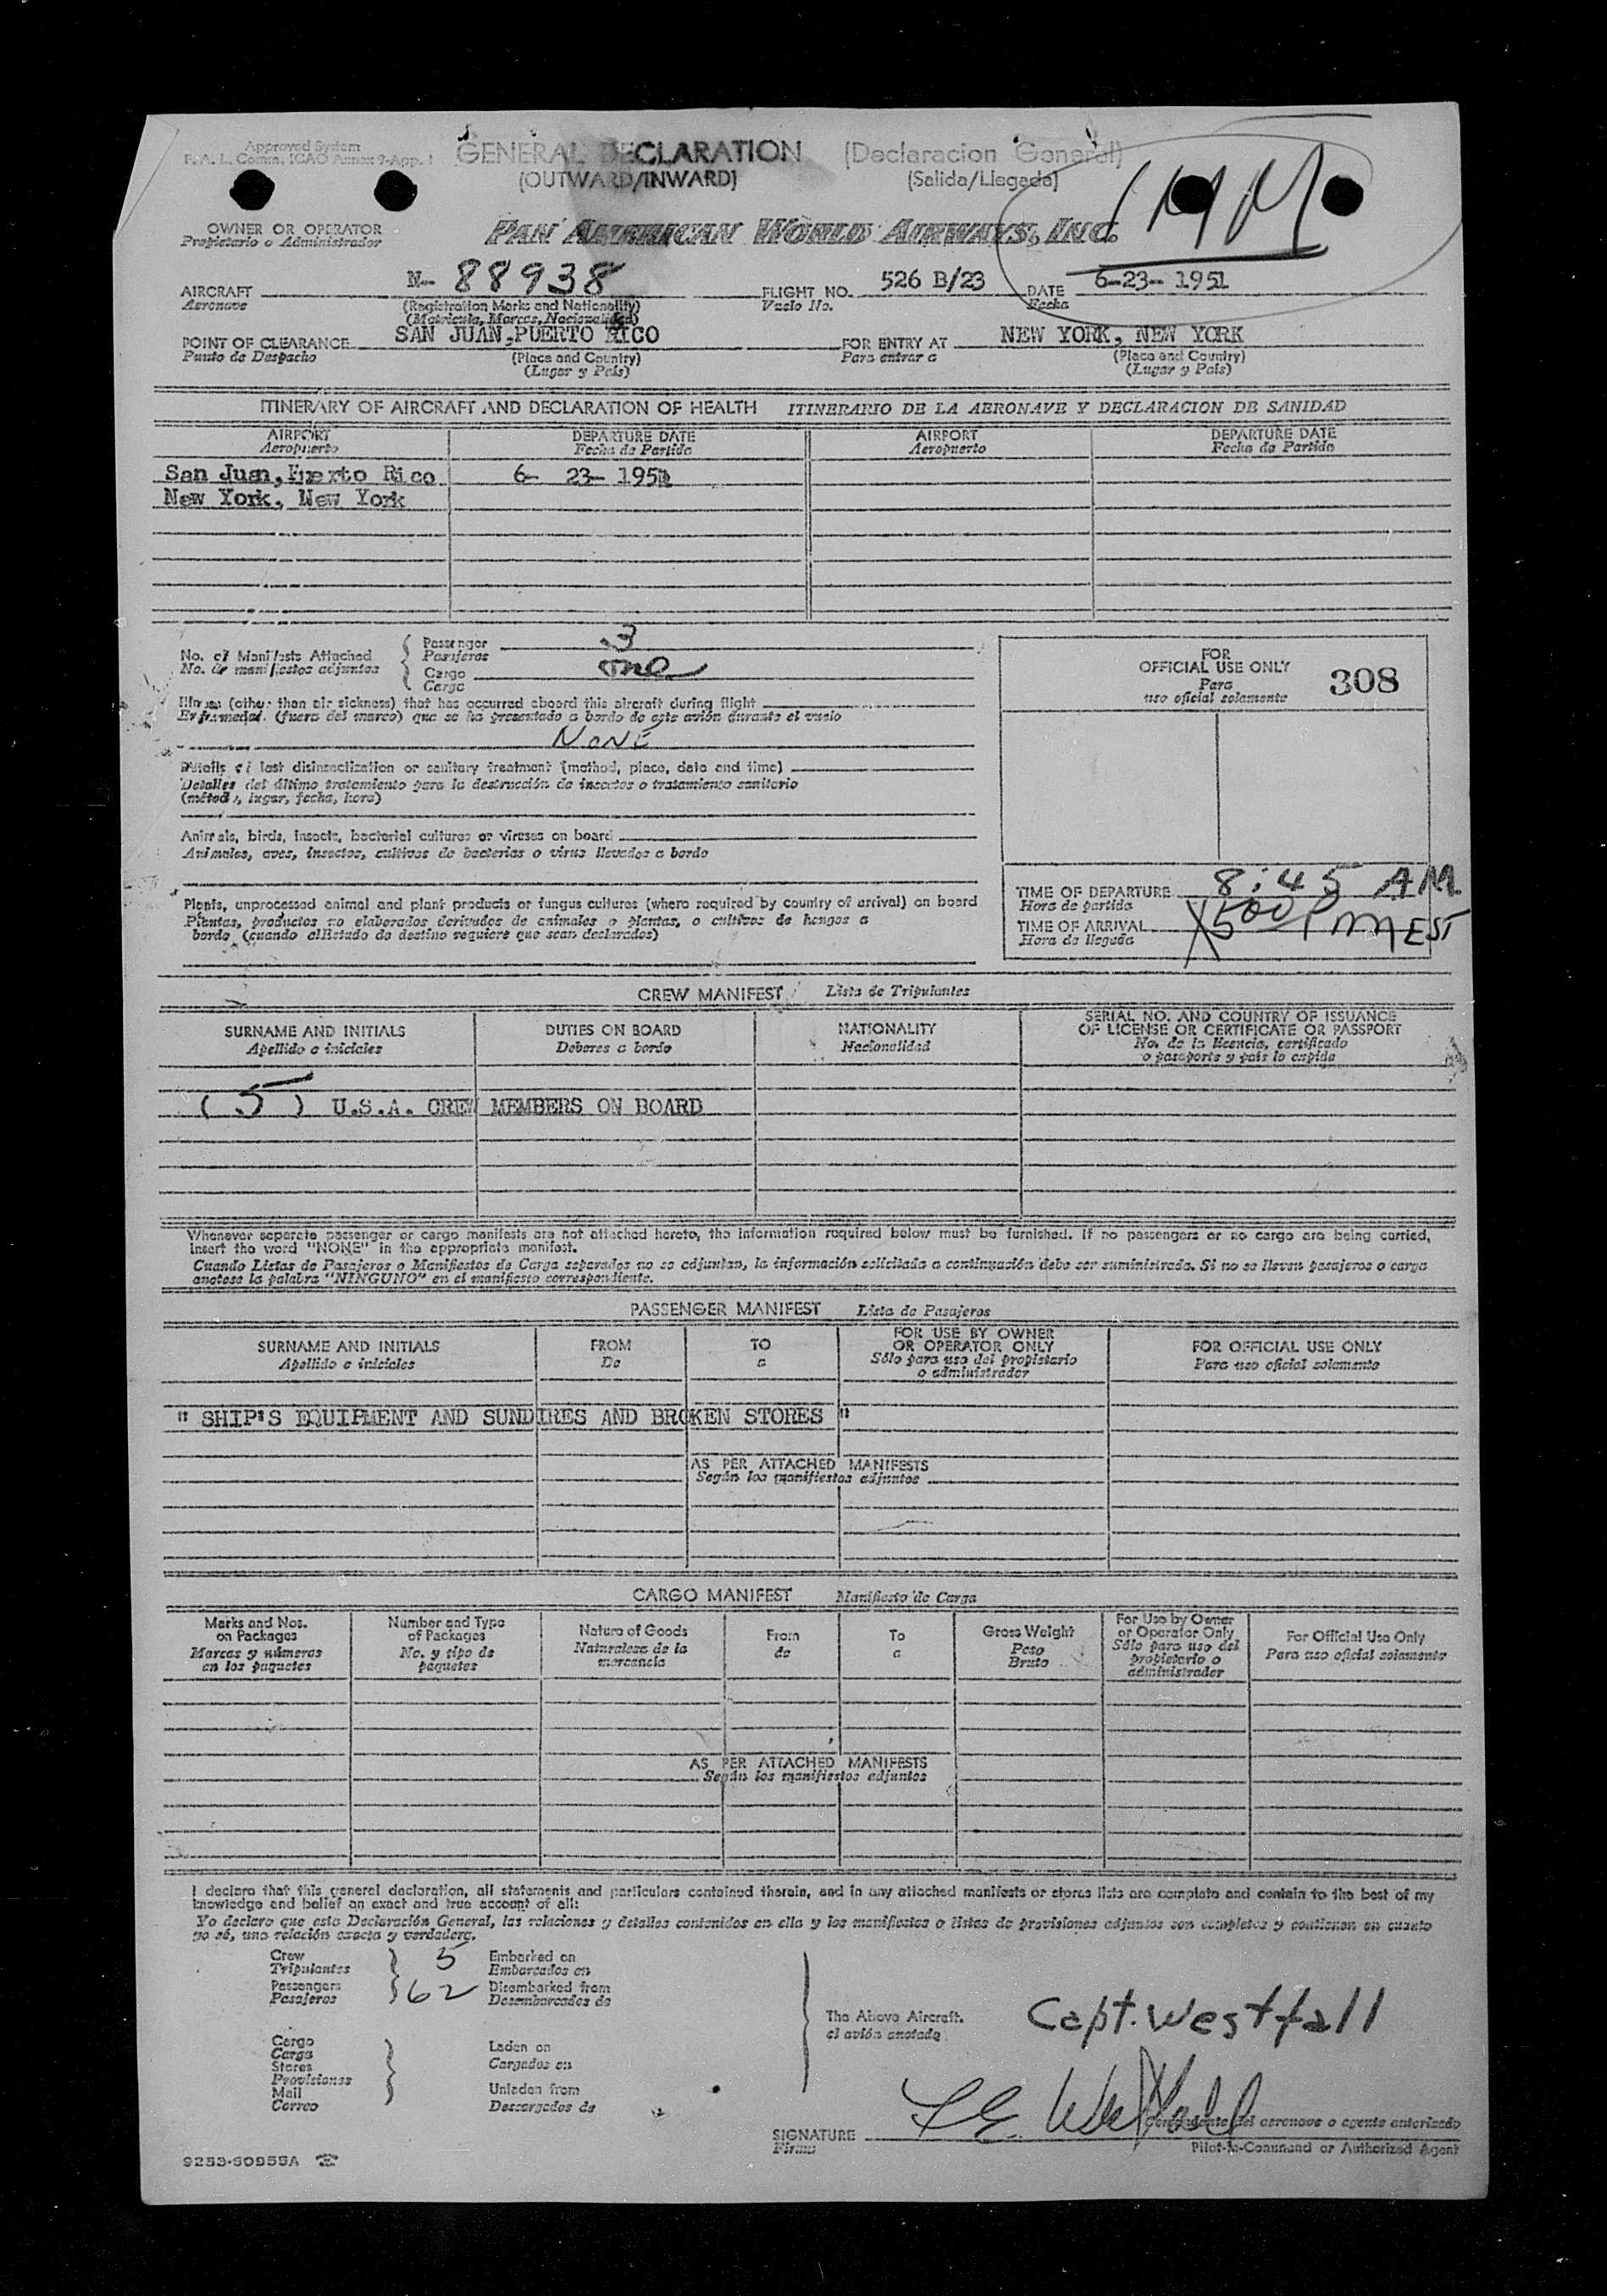 Approved System
F. A. L. Comm. ICAO Annex 9-App. 1
GENERAL DECLARATION (Declaracion General)
(OUTWARD/INWARD) (Salida/Llegada)
OWNER OR OPERATOR
Propietario o Administrador
PAN AMERICAN WORLD AIRWAYS, INC.
AIRCRAFT N- 88938 FLIGHT NO. 526 B/23 DATE 6-23- 1951
Aeronave (Registration Marks and Nationality) Vuelo No. Fecha
(Matricula, Marcas, Nacionalidad)
POINT OF CLEARANCE SAN JUAN,PUERTO RICO FOR ENTRY AT NEW YORK, NEW YORK
Punto de Despacho (Place and Country) Para entrar a (Place and Country)
(Lugar y País) (Lugar y País)
ITINERARY OF AIRCRAFT AND DECLARATION OF HEALTH ITINERARIO DE LA AERONAVE Y DECLARACION DE SANIDAD
AIRPORT DEPARTURE DATE AIRPORT DEPARTURE DATE
Aeropuerto Fecha de Partida Aeropuerto Fecha de Partida
San Juan, Puerto Rico 6- 23- 1951
New York, New York
No. of Manifests Attached
No. de manifiestos adjuntos
Passenger 3
Pasajeros
Cargo one
Carga
FOR
OFFICIAL USE ONLY 308
Para
uso oficial solamente
Illness (other than air sickness) that has occurred aboard this aircraft during flight
Enfermedad (fuera del mareo) que se ha presentado a bordo de este avión durante el vuelo
NONE
Details of last disinsectization or sanitary treatment (method, place, date and time)
Detalles del último tratamiento para la destrucción de insectos o tratamiento sanitario
(método, lugar, fecha, hora)
Animals, birds, insects, bacterial cultures or viruses on board
Animales, aves, insectos, cultivos de bacterias o virus llevados a bordo
Plants, unprocessed animal and plant products or fungus cultures (where required by country of arrival) on board
Plantas, productos no elaborados derivados de animales o plantas, o cultivos de hongos a
bordo (cuando el Estado de destino requiere que sean declarados)
TIME OF DEPARTURE 8:45 AM
Hora de partida
TIME OF ARRIVAL 500 PM EST
Hora de llegada
CREW MANIFEST Lista de Tripulantes
SURNAME AND INITIALS DUTIES ON BOARD NATIONALITY SERIAL NO. AND COUNTRY OF ISSUANCE
Apellido e iniciales Deberes a bordo Nacionalidad OF LICENSE OR CERTIFICATE OR PASSPORT
No. de la licencia, certificado
o pasaporte y país lo expide
( 5 ) U.S.A. CREW MEMBERS ON BOARD
Whenever separate passenger or cargo manifests are not attached hereto, the information required below must be furnished. If no passengers or no cargo are being carried,
insert the word "NONE" in the appropriate manifest.
Cuando Listas de Pasajeros o Manifiestos de Carga separados no se adjuntan, la información solicitada a continuación debe ser suministrada. Si no se llevan pasajeros o carga
anotese la palabra "NINGUNO" en el manifiesto correspondiente.
PASSENGER MANIFEST Lista de Pasajeros
SURNAME AND INITIALS FROM TO FOR USE BY OWNER FOR OFFICIAL USE ONLY
Apellido e iniciales De a OR OPERATOR ONLY Para uso oficial solamente
Sólo para uso del propietario
o administrador
" SHIP'S EQUIPMENT AND SUNDIRES AND BROKEN STORES "
AS PER ATTACHED MANIFESTS
Según los manifiestos adjuntos
CARGO MANIFEST Manifiesto de Carga
Marks and Nos. on Packages
Marcas y números en los paquetes
Number and Type of Packages
No. y tipo de paquetes
Nature of Goods
Naturaleza de la mercancía
From
de
To
a
Gross Weight
Peso Bruto
For Use by Owner or Operator Only
Sólo para uso del propietario o administrador
For Official Use Only
Para uso oficial solamente
AS PER ATTACHED MANIFESTS
Según los manifiestos adjuntos
I declare that this general declaration, all statements and particulars contained therein, and in any attached manifests or stores lists are complete and contain to the best of my
knowledge and belief an exact and true account of all:
Yo declaro que esta Declaración General, las relaciones y detalles contenidos en ella y los manifiestos o listas de provisiones adjuntos son completos y contienen en cuanto
yo sé, una relación exacta y verdadera.
Crew 5 Embarked on
Tripulantes Embarcados en
Passengers 62 Disembarked from
Pasajeros Desembarcados de
Cargo
Carga Laden on
Stores Cargados en
Provisiones
Mail Unladen from
Correo Descargados de
The Above Aircraft.
el avión anotado
Capt. Westfall
SIGNATURE
Firma
Comandante del aeronave o agente autorizado
Pilot-in-Command or Authorized Agent
9253-60955A